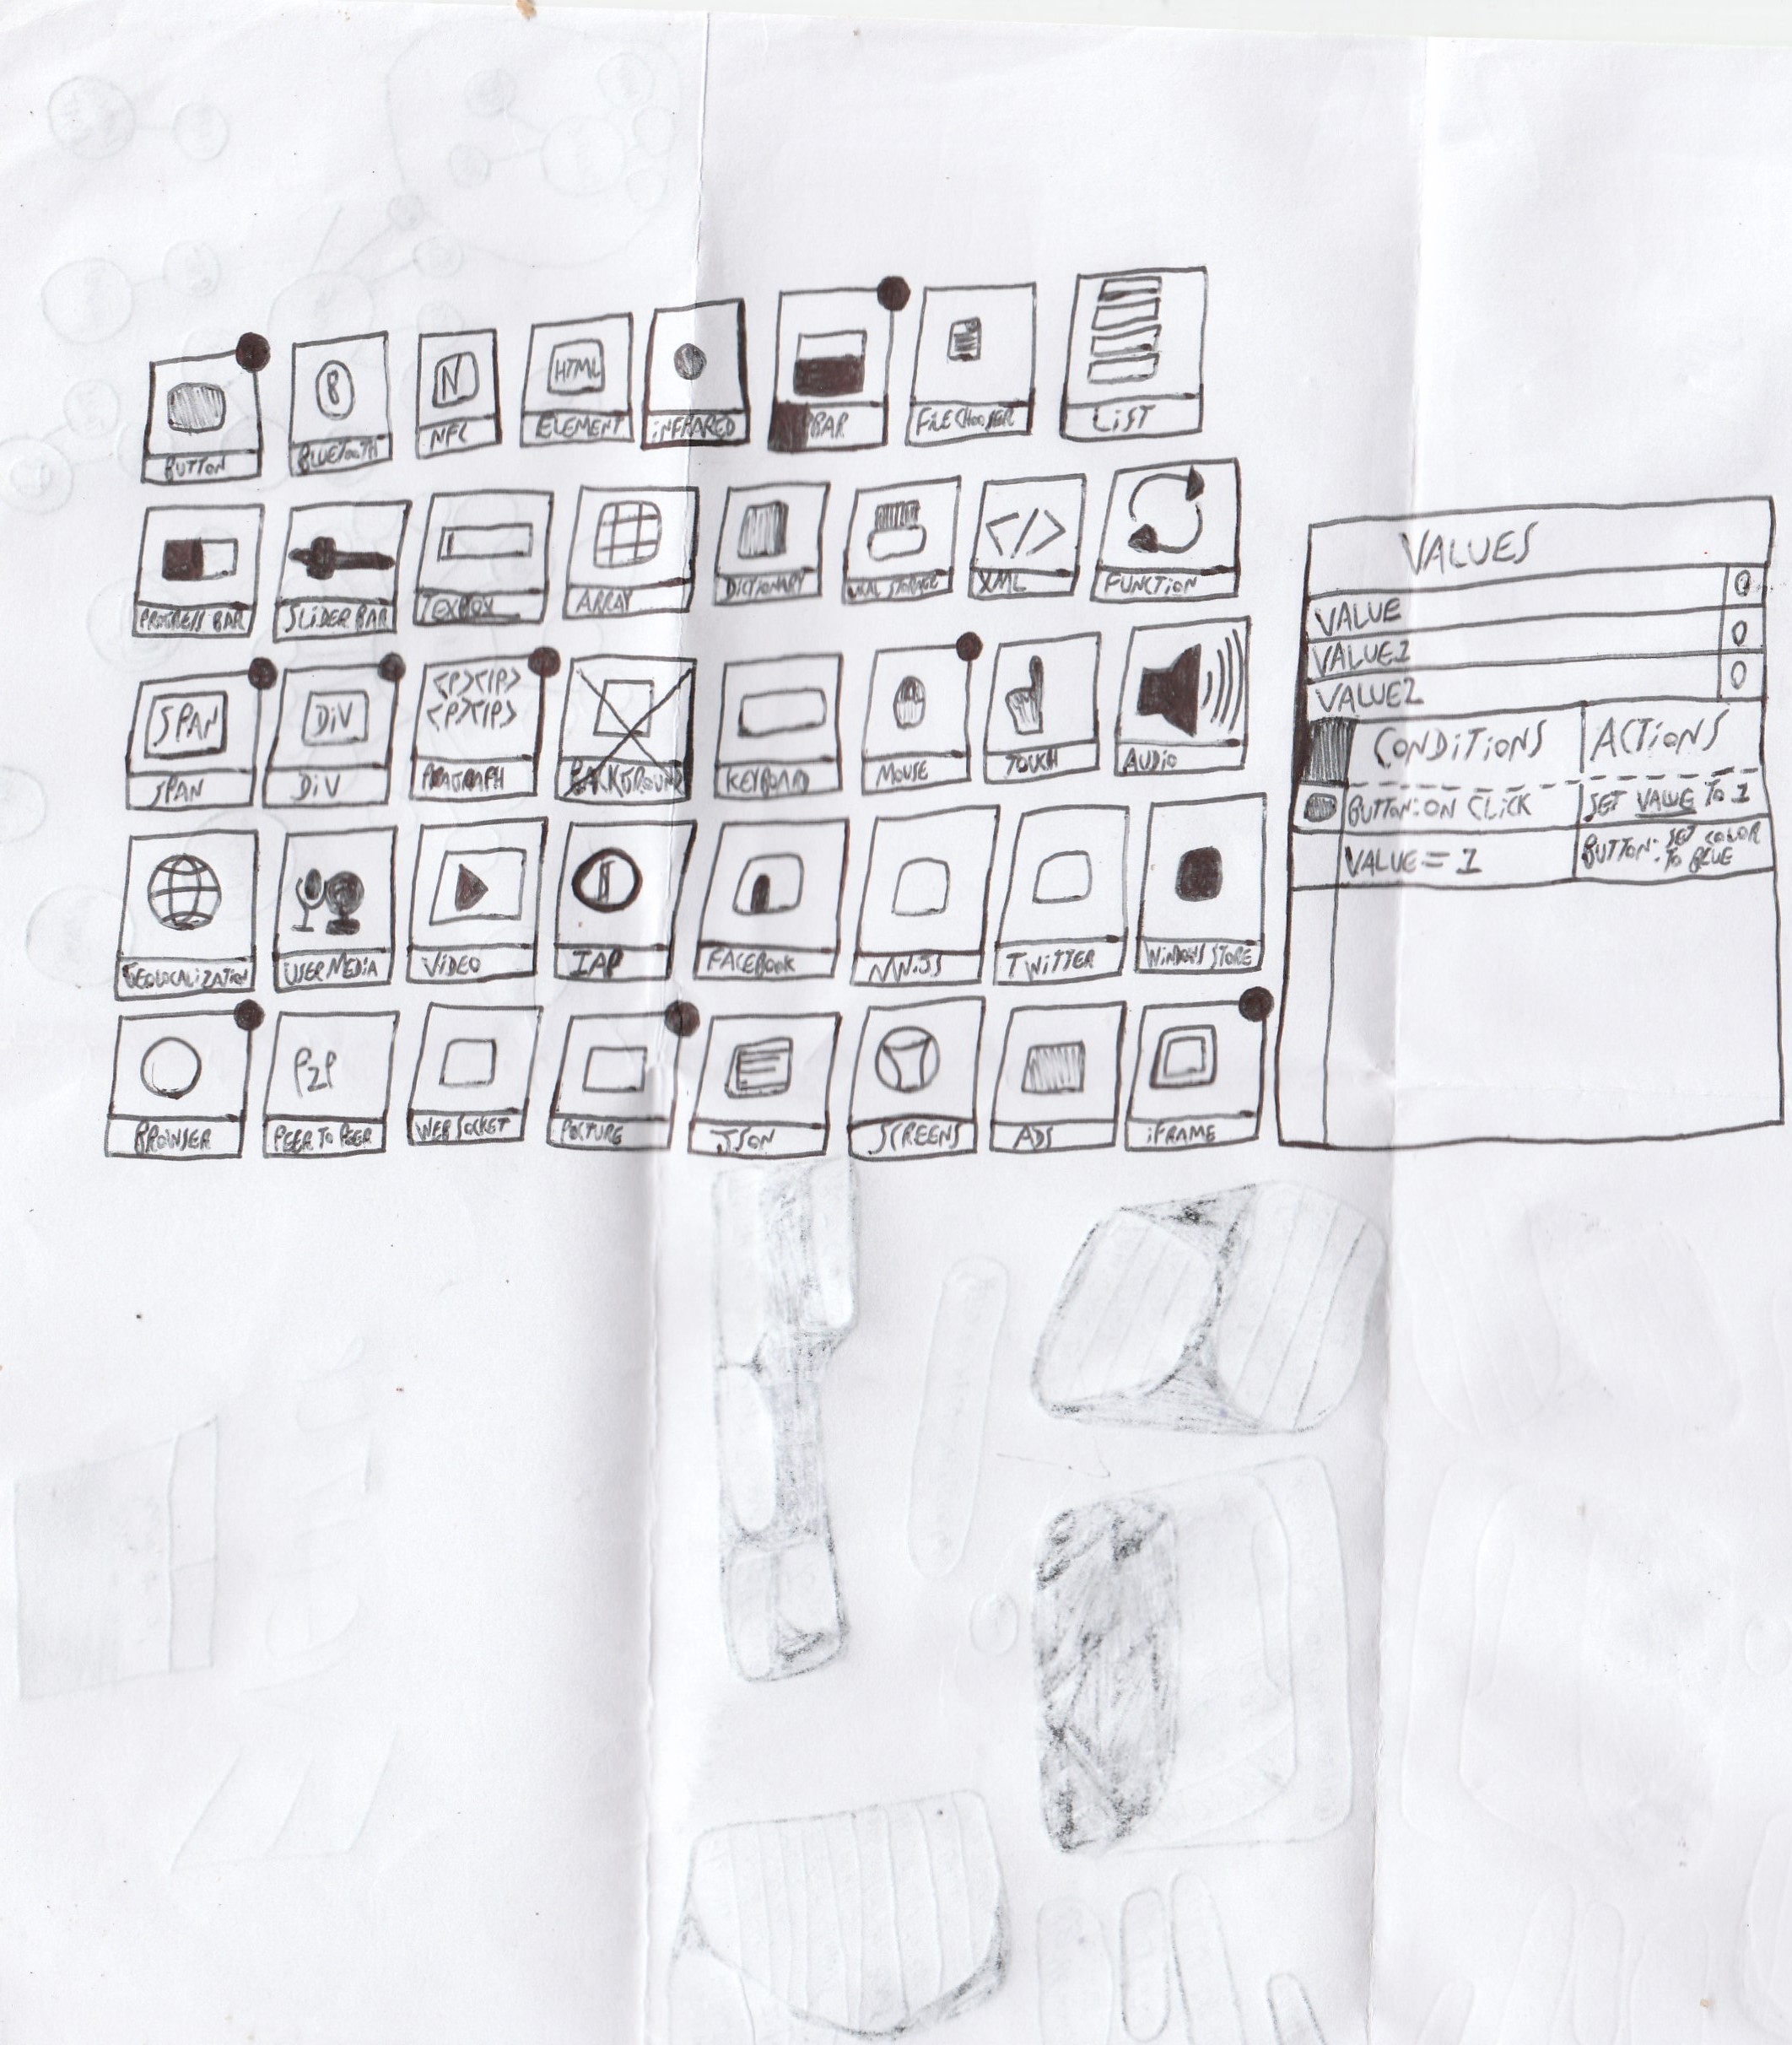 B
N
HTML
BUTTON
BLUETOOTH
NFC
ELEMENT
INFRARED
BAR
FILE CHOOSER
LIST
</>
PROGRESS BAR
SLIDER BAR
TEXBOX
ARRAY
DICTIONARY
LOCAL STORAGE
XML
FUNCTION
SPAN
DIV
<P><IP>
<P><IP>
SPAN
DIV
PARAGRAPH
BACKGROUND
KEYBOARD
MOUSE
TOUCH
AUDIO
GEOLOCALIZATION
USER MEDIA
VIDEO
IAP
FACEBOOK
NW.JS
TWITTER
WINDOWS STORE
P2P
BROWSER
PEER TO PEER
WEB SOCKET
PICTURE
JSON
SCREENS
ADS
IFRAME
VALUES
VALUE
VALUE1
VALUE2
CONDITIONS
ACTIONS
BUTTON: ON CLICK
SET VALUE TO 1
VALUE = 1
BUTTON: SET COLOR
TO BLUE